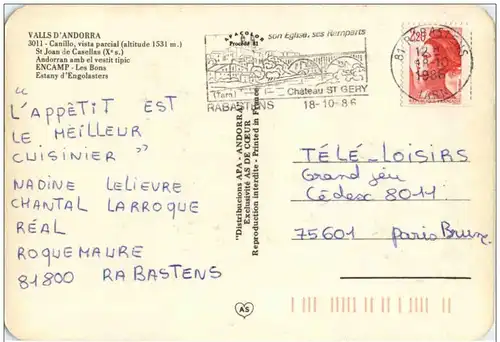 VALLS D'ANDORRA
3011 - Canillo, vista parcial (altitude 1531 m.)
St Joan de Casellas (Xº s.)
Andorran amb el vestit típic
ENCAMP - Les Bons
Estany d'Engolasters
APACOLOR
Procédé 82
son Eglise, ses Remparts
(Tarn)
Château ST GERY
RABASTENS
18-10-86
81 RABASTENS
18-10
1986
TARN
2,20
"L'APPÊTIT EST
LE MEILLEUR
CUISINIER"
NADINE LELIEVRE
CHANTAL LARROQUE
RÉAL
ROQUEMAURE
81800 RABASTENS
"Distribucions APA - ANDORRA"
Exclusivité AS DE CŒUR
Reproduction interdite - Printed in France
TÉLÉ-LOISIRS
Grand jeu
Cédex 8011
75601 Paris Brune
AS